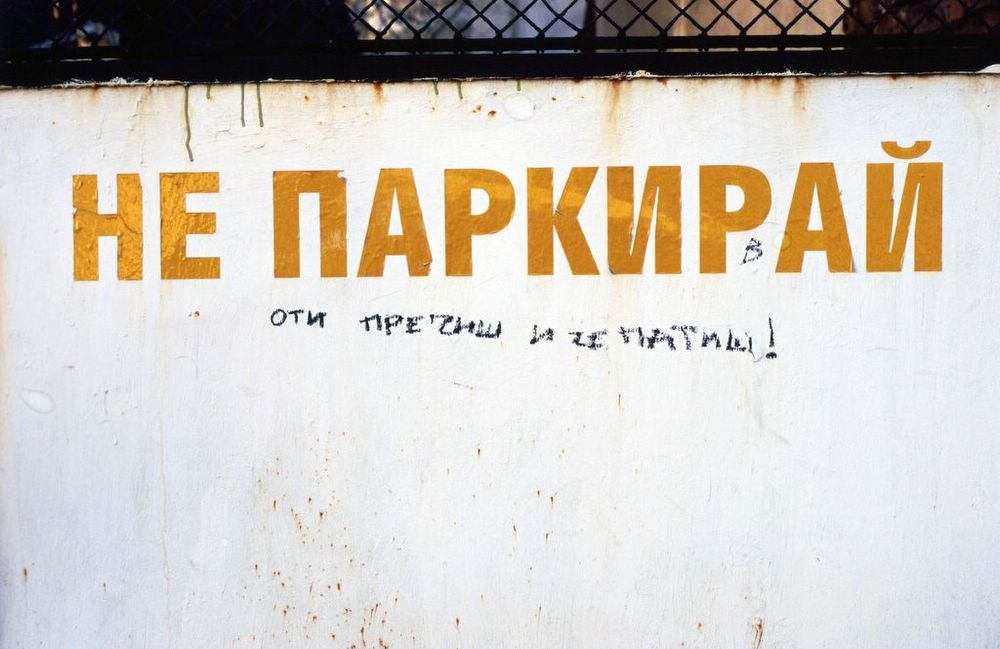 НЕ ПАРКИРАЙ
в
оти пречиш и ќе патиш!